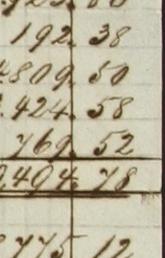 192. 38
4809. 50
.424. 58
769. 52
9,494. 78
775 12